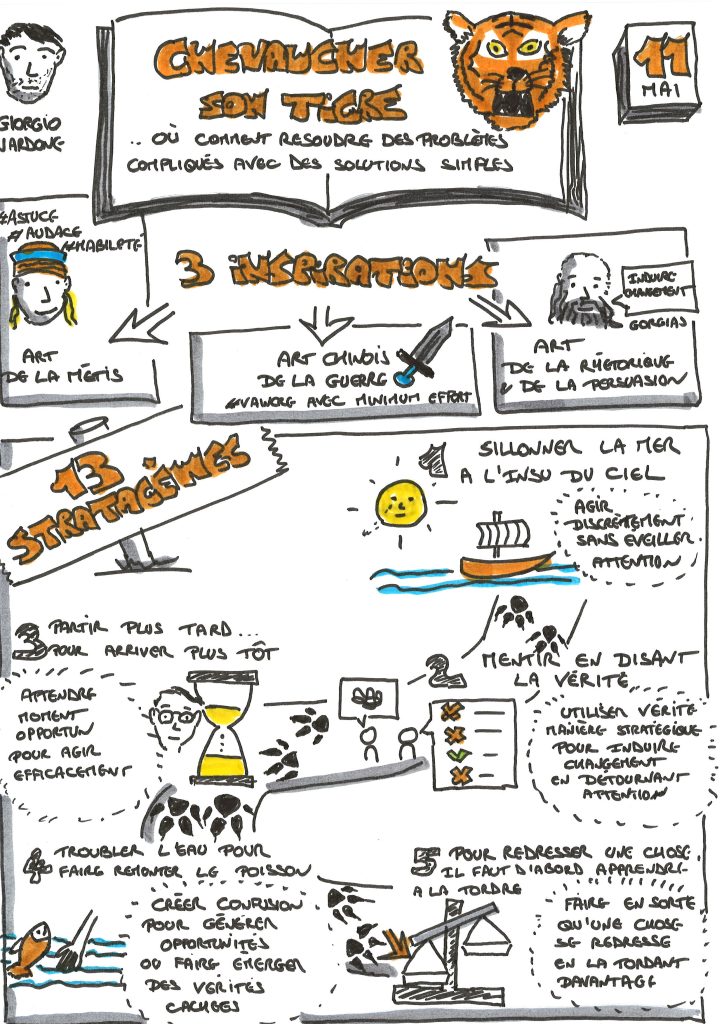 CHEVAUCHER
SON TIGRE
.. OÙ COMMENT RESOUDRE DES PROBLÈMES
COMPLIQUÉS AVEC DES SOLUTIONS SIMPLES
11
MAI
GIORGIO
NARDONE
#ASTUCE
# AUDACE
#HABILETÉ
3 INSPIRATIONS
INDUIRE
CHANGEMENT
GORGIAS
ART
DE LA MÉTIS
ART CHINOIS
DE LA GUERRE
#VAINCRE AVEC MINIMUM EFFORT
ART
DE LA RHÉTORIQUE
& DE LA PERSUASION
13
STRATAGÈMES
1 SILLONNER LA MER
A L'INSU DU CIEL
AGIR
DISCRÈTEMENT
SANS EVEILLER
ATTENTION
2 MENTIR EN DISANT
LA VÉRITÉ
UTILISER VÉRITÉ
MANIÈRE STRATÉGIQUE
POUR INDUIRE
CHANGEMENT
EN DÉTOURNANT
ATTENTION
3 PARTIR PLUS TARD...
POUR ARRIVER PLUS TÔT
ATTENDRE
MOMENT
OPPORTUN
POUR AGIR
EFFICACEMENT
4 TROUBLER L'EAU POUR
FAIRE REMONTER LE POISSON
CRÉER CONFUSION
POUR GÉNÉRER
OPPORTUNITÉS
OU FAIRE ÉMERGER
DES VERITES
CACHEES
5 POUR REDRESSER UNE CHOSE
IL FAUT D'ABORD APPRENDRE
A LA TORDRE
FAIRE EN SORTE
QU'UNE CHOSE
SE REDRESSE
EN LA TORDANT
DAVANTAGE